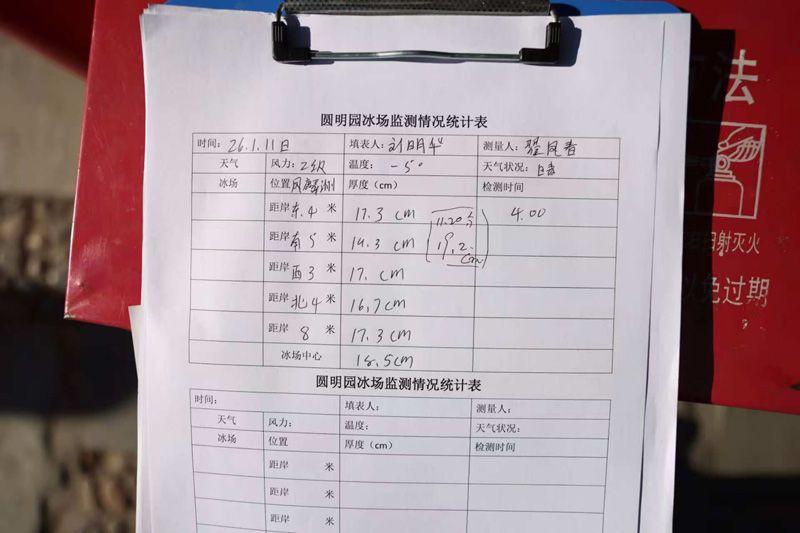 圆明园冰场监测情况统计表
时间：26.1.11日 填表人：刘明华 测量人：翟凤香
天气 风力：2级 温度：-5° 天气状况：晴
冰场 位置 厚度（cm） 检测时间
距岸东4米 17.3cm 11.20分 4.00
距岸南5米 14.3cm 19.2cm
距岸西3米 17.cm
距岸北4米 16.7cm
距岸8米 17.3cm
冰场中心 18.5cm
圆明园冰场监测情况统计表
时间： 填表人： 测量人：
天气 风力： 温度： 天气状况：
冰场 位置 厚度（cm） 检测时间
距岸 米
距岸 米
距岸 米
法
射灭火
免过期